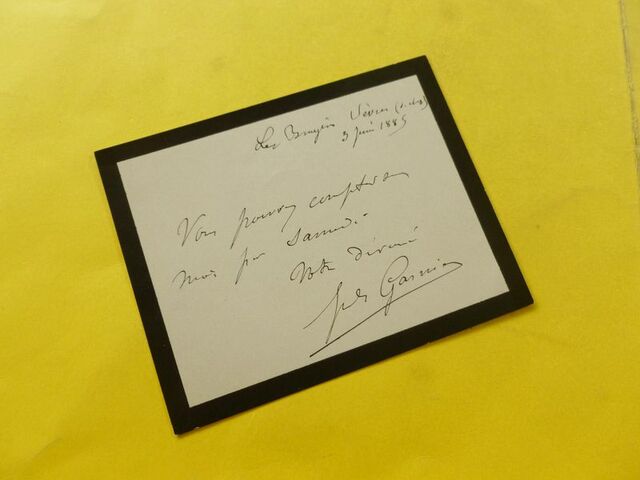 Les Bruyères Sèvres (S. & O.)
3 juin 1885
Vous pouvez compter sur
moi pour Samedi.
Votre dévoué
Jules Garnier